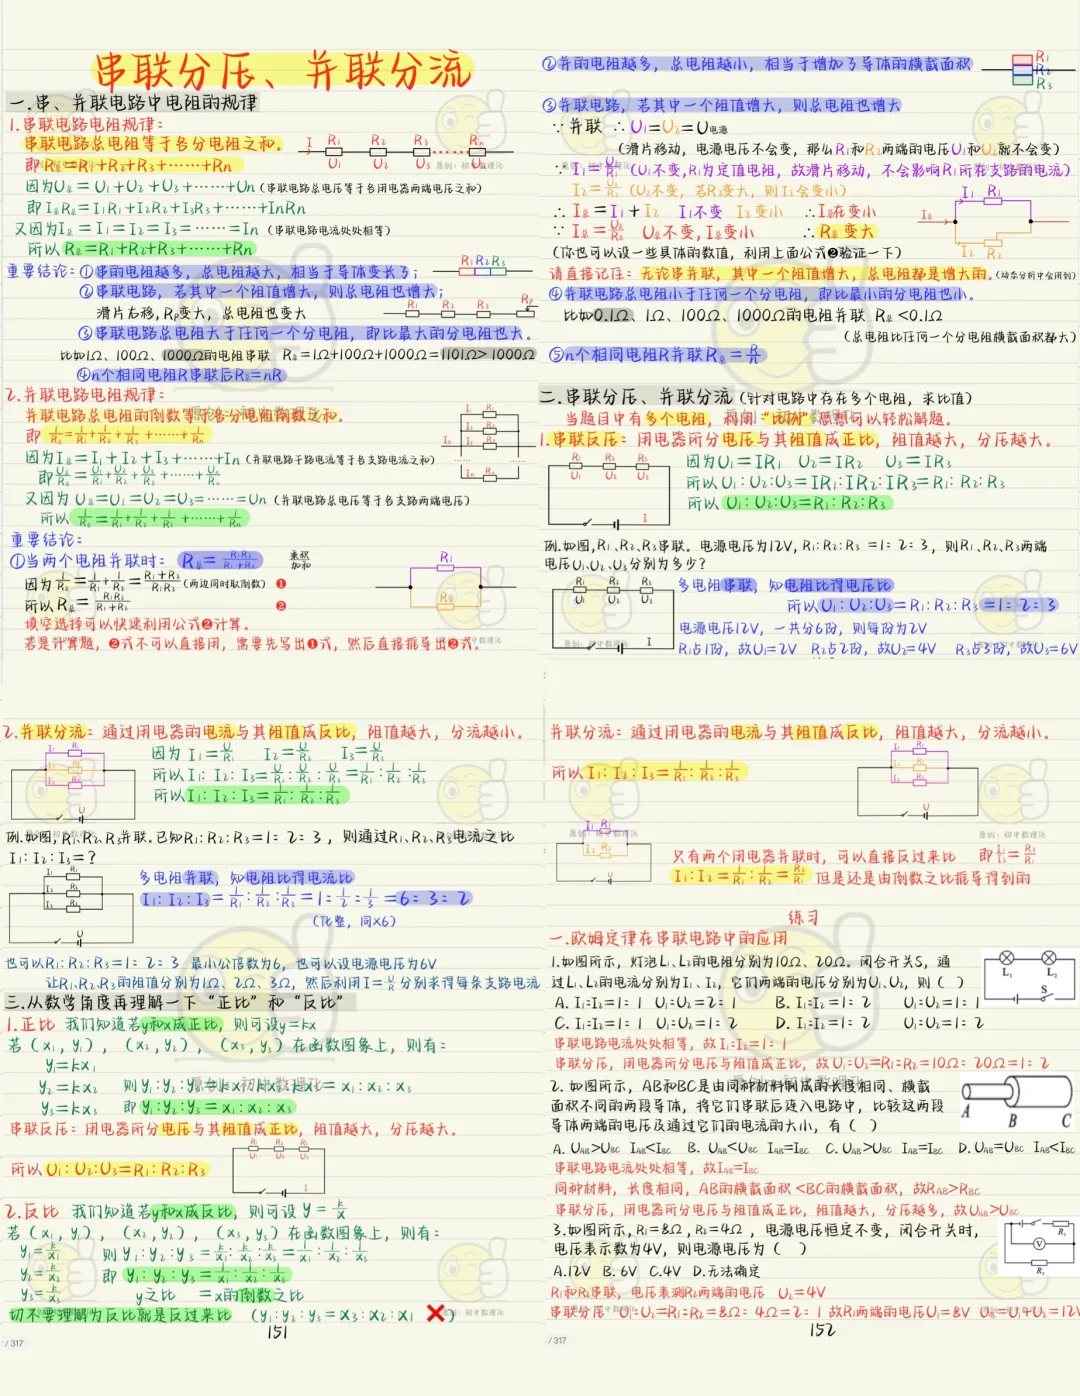 串联分压、并联分流
一.串、并联电路中电阻的规律
1.串联电路电阻规律:
串联电路总电阻等于各分电阻之和。
即R总=R₁+R₂+R₃+……+Rn
因为U总=U₁+U₂+U₃+……+Un(串联电路总电压等于各用电器两端电压之和)
即I总R总=I₁R₁+I₂R₂+I₃R₃+……+InRn
又因为I总=I₁=I₂=I₃=……=In(串联电路电流处处相等)
所以R总=R₁+R₂+R₃+……+Rn
重要结论:①串的电阻越多,总电阻越大,相当于导体变长了;
②串联电路,若其中一个阻值增大,则总电阻也增大;
滑片右移,Rp变大,总电阻也变大
③串联电路总电阻大于任何一个分电阻,即比最大的分电阻也大。
比如1Ω、100Ω、1000Ω的电阻串联 R总=1Ω+100Ω+1000Ω=1101Ω>1000Ω
④n个相同电阻R串联后R总=nR
2.并联电路电阻规律:
并联电路总电阻的倒数等于各分电阻倒数之和。
即1/R总=1/R₁+1/R₂+1/R₃+……+1/Rn
因为I总=I₁+I₂+I₃+……+In(并联电路干路电流等于各支路电流之和)
即U总/R总=U₁/R₁+U₂/R₂+U₃/R₃+……+Un/Rn
又因为U总=U₁=U₂=U₃=……=Un(并联电路总电压等于各支路两端电压)
所以1/R总=1/R₁+1/R₂+1/R₃+……+1/Rn
重要结论:
①当两个电阻并联时: R总=R₁R₂/R₁+R₂ 乘积/加和
因为1/R总=1/R₁+1/R₂=R₁+R₂/R₁R₂(两边同时取倒数) ❶
所以R总=R₁R₂/R₁+R₂ ❷
填空选择可以快速利用公式❷计算。
若是计算题,❷式不可以直接用,需要先写出❶式,然后直接推导出❷式。
②并的电阻越多,总电阻越小,相当于增加了导体的横截面积
③并联电路,若其中一个阻值增大,则总电阻也增大
∵并联 ∴U₁=U₂=U电源
(滑片移动,电源电压不会变,那么R₁和R₂两端的电压U₁和U₂就不会变)
∵I₁=U₁/R₁(U₁不变,R₁为定值电阻,故滑片移动,不会影响R₁所在支路的电流)
I₂=U₂/R₂(U₂不变,若R₂变大,则I₂会变小)
∴I总=I₁+I₂ I₁不变 I₂变小 ∴I总在变小
∵I总=U总/R总 U总不变,I总变小 ∴R总变大
(你也可以设一些具体的数值,利用上面公式❷验证一下)
请直接记住:无论串并联,其中一个阻值增大,总电阻都是增大的。(动态分析中会用到)
④并联电路总电阻小于任何一个分电阻,即比最小的分电阻也小。
比如0.1Ω、1Ω、100Ω、1000Ω的电阻并联 R总<0.1Ω
(总电阻比任何一个分电阻横截面积都大)
⑤n个相同电阻R并联R总=R/n
二.串联分压、并联分流(针对电路中存在多个电阻,求比值)
当题目中有多个电阻,利用“比例”思想可以轻松解题。
1.串联反压:用电器所分电压与其阻值成正比,阻值越大,分压越大。
因为U₁=IR₁ U₂=IR₂ U₃=IR₃
所以U₁:U₂:U₃=IR₁:IR₂:IR₃=R₁:R₂:R₃
所以U₁:U₂:U₃=R₁:R₂:R₃
例.如图,R₁、R₂、R₃串联。电源电压为12V,R₁:R₂:R₃=1:2:3,则R₁、R₂、R₃两端
电压U₁、U₂、U₃分别为多少?
多电阻串联,知电阻比得电压比
所以U₁:U₂:U₃=R₁:R₂:R₃=1:2:3
电源电压12V,一共分6份,则每份为2V
R₁占1份,故U₁=2V R₂占2份,故U₂=4V R₃占3份,故U₃=6V
2.并联分流:通过用电器的电流与其阻值成反比,阻值越大,分流越小。
因为I₁=U/R₁ I₂=U/R₂ I₃=U/R₃
所以I₁:I₂:I₃=U/R₁:U/R₂:U/R₃=1/R₁:1/R₂:1/R₃
所以I₁:I₂:I₃=1/R₁:1/R₂:1/R₃
例.如图,R₁、R₂、R₃并联。已知R₁:R₂:R₃=1:2:3,则通过R₁、R₂、R₃电流之比
I₁:I₂:I₃=?
多电阻并联,知电阻比得电流比
I₁:I₂:I₃=1/R₁:1/R₂:1/R₃=1:1/2:1/3=6:3:2
(化整,同×6)
也可以R₁:R₂:R₃=1:2:3 最小公倍数为6,也可以设电源电压为6V
让R₁、R₂、R₃的阻值分别为1Ω、2Ω、3Ω,然后利用I=U/R分别求得每条支路电流
三.从数学角度再理解一下“正比”和“反比”
1.正比 我们知道若y和x成正比,则可设y=kx
若(x₁,y₁),(x₂,y₂),(x₃,y₃)在函数图象上,则有:
y₁=kx₁
y₂=kx₂ 则y₁:y₂:y₃=kx₁:kx₂:kx₃=x₁:x₂:x₃
y₃=kx₃ 即y₁:y₂:y₃=x₁:x₂:x₃
串联反压:用电器所分电压与其阻值成正比,阻值越大,分压越大。
所以U₁:U₂:U₃=R₁:R₂:R₃
2.反比 我们知道若y和x成反比,则可设y=k/x
若(x₁,y₁),(x₂,y₂),(x₃,y₃)在函数图象上,则有:
y₁=k/x₁ 则y₁:y₂:y₃=k/x₁:k/x₂:k/x₃=1/x₁:1/x₂:1/x₃
y₂=k/x₂ 即y₁:y₂:y₃=1/x₁:1/x₂:1/x₃
y₃=k/x₃ y之比=x的倒数之比
切不要理解为反比就是反过来比 (y₁:y₂:y₃=x₃:x₂:x₁ ❌)
151
/ 317
并联分流:通过用电器的电流与其阻值成反比,阻值越大,分流越小。
所以I₁:I₂:I₃=1/R₁:1/R₂:1/R₃
只有两个用电器并联时,可以直接反过来比 即I₁/I₂=R₂/R₁
I₁:I₂=1/R₁:1/R₂=R₂/R₁ 但是还是由倒数之比推导得到的
练习
一.欧姆定律在串联电路中的应用
1.如图所示,灯泡L₁、L₂的电阻分别为10Ω、20Ω。闭合开关S,通
过L₁、L₂的电流分别为I₁、I₂,它们两端的电压分别为U₁、U₂,则( )
A. I₁:I₂=1:1 U₁:U₂=2:1 B. I₁:I₂=1:2 U₁:U₂=1:1
C. I₁:I₂=1:1 U₁:U₂=1:2 D. I₁:I₂=1:2 U₁:U₂=1:2
串联电路电流处处相等,故I₁:I₂=1:1
串联分压,用电器所分电压与阻值成正比,故U₁:U₂=R₁:R₂=10Ω:20Ω=1:2
2. 如图所示,AB和BC是由同种材料制成的长度相同、横截
面积不同的两段导体,将它们串联后连入电路中,比较这两段
导体两端的电压及通过它们的电流的大小,有( )
A. UAB>UBC IAB<IBC B. UAB<UBC IAB=IBC C. UAB>UBC IAB=IBC D. UAB=UBC IAB<IBC
串联电路电流处处相等,故IAB=IBC
同种材料,长度相同,AB的横截面积<BC的横截面积,故RAB>RBC
串联分压,用电器所分电压与阻值成正比,阻值越大,分压越多,故UAB>UBC
3.如图所示,R₁=8Ω,R₂=4Ω,电源电压恒定不变,闭合开关时,
电压表示数为4V,则电源电压为( )
A.12V B.6V C.4V D.无法确定
R₁和R₂串联,电压表测R₂两端的电压 U₂=4V
串联分压 U₁:U₂=R₁:R₂=8Ω:4Ω=2:1 故R₁两端的电压U₁=8V U总=U₁+U₂=12V
152
/ 317